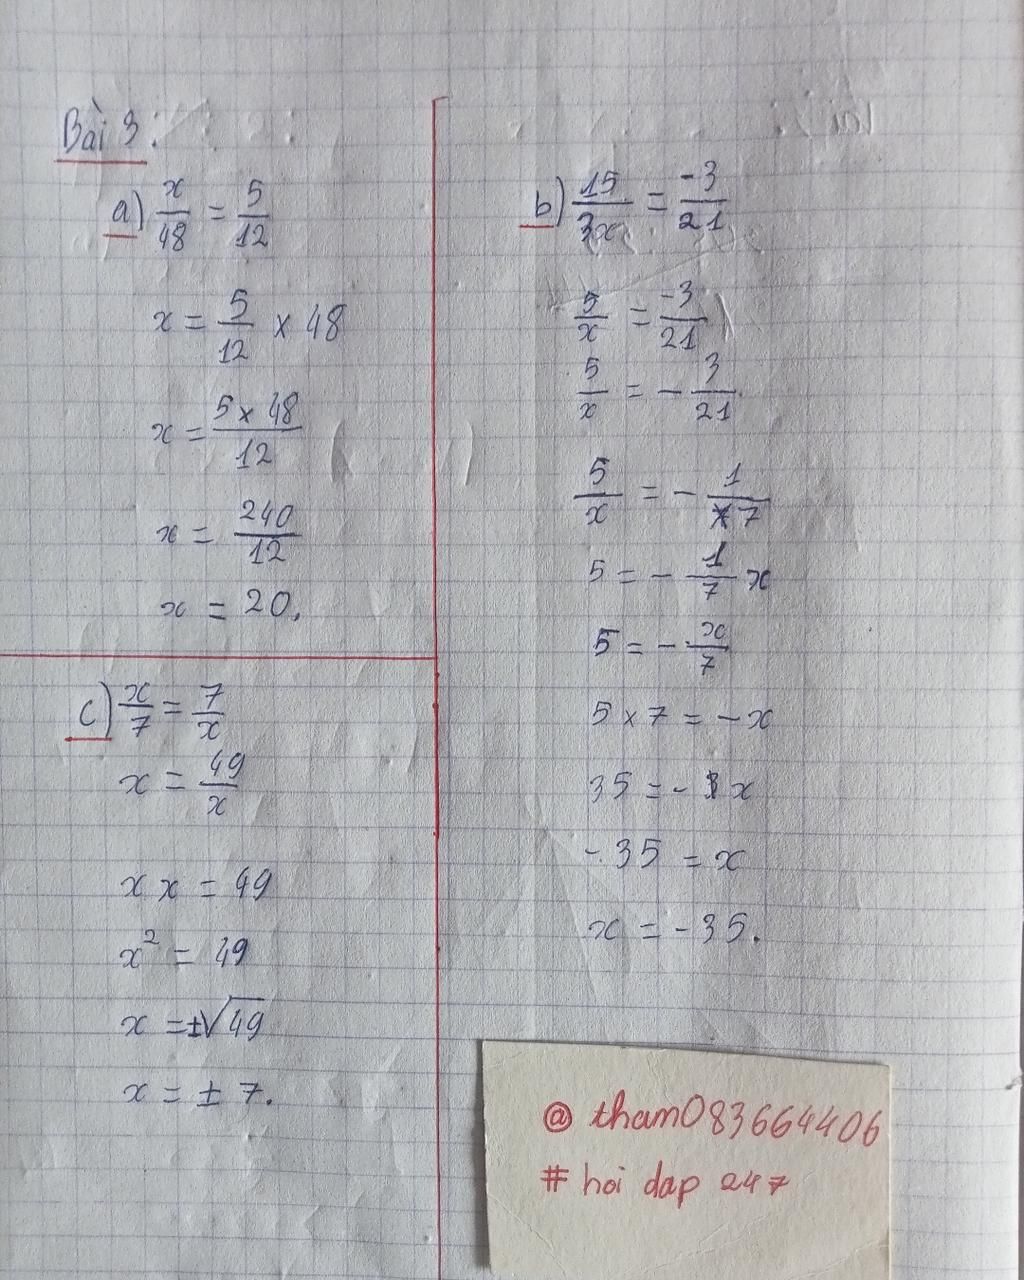 Bài 3:
a) x/48 = 5/12
x = 5/12 x 48
x = 5 x 48/12
x = 240/12
x = 20.
c) x/7 = 7/x
x = 49/x
x x = 49
x² = 49
x = ±√49
x = ± 7.
b) 15/3x = -3/21
5/x = -3/21
5/x = - 3/21
5/x = - 1/7
5 = - 1/7 x
5 = - x/7
5 x 7 = - x
35 = - x
- 35 = x
x = - 35.
@ tham083664406
# hoi dap 247